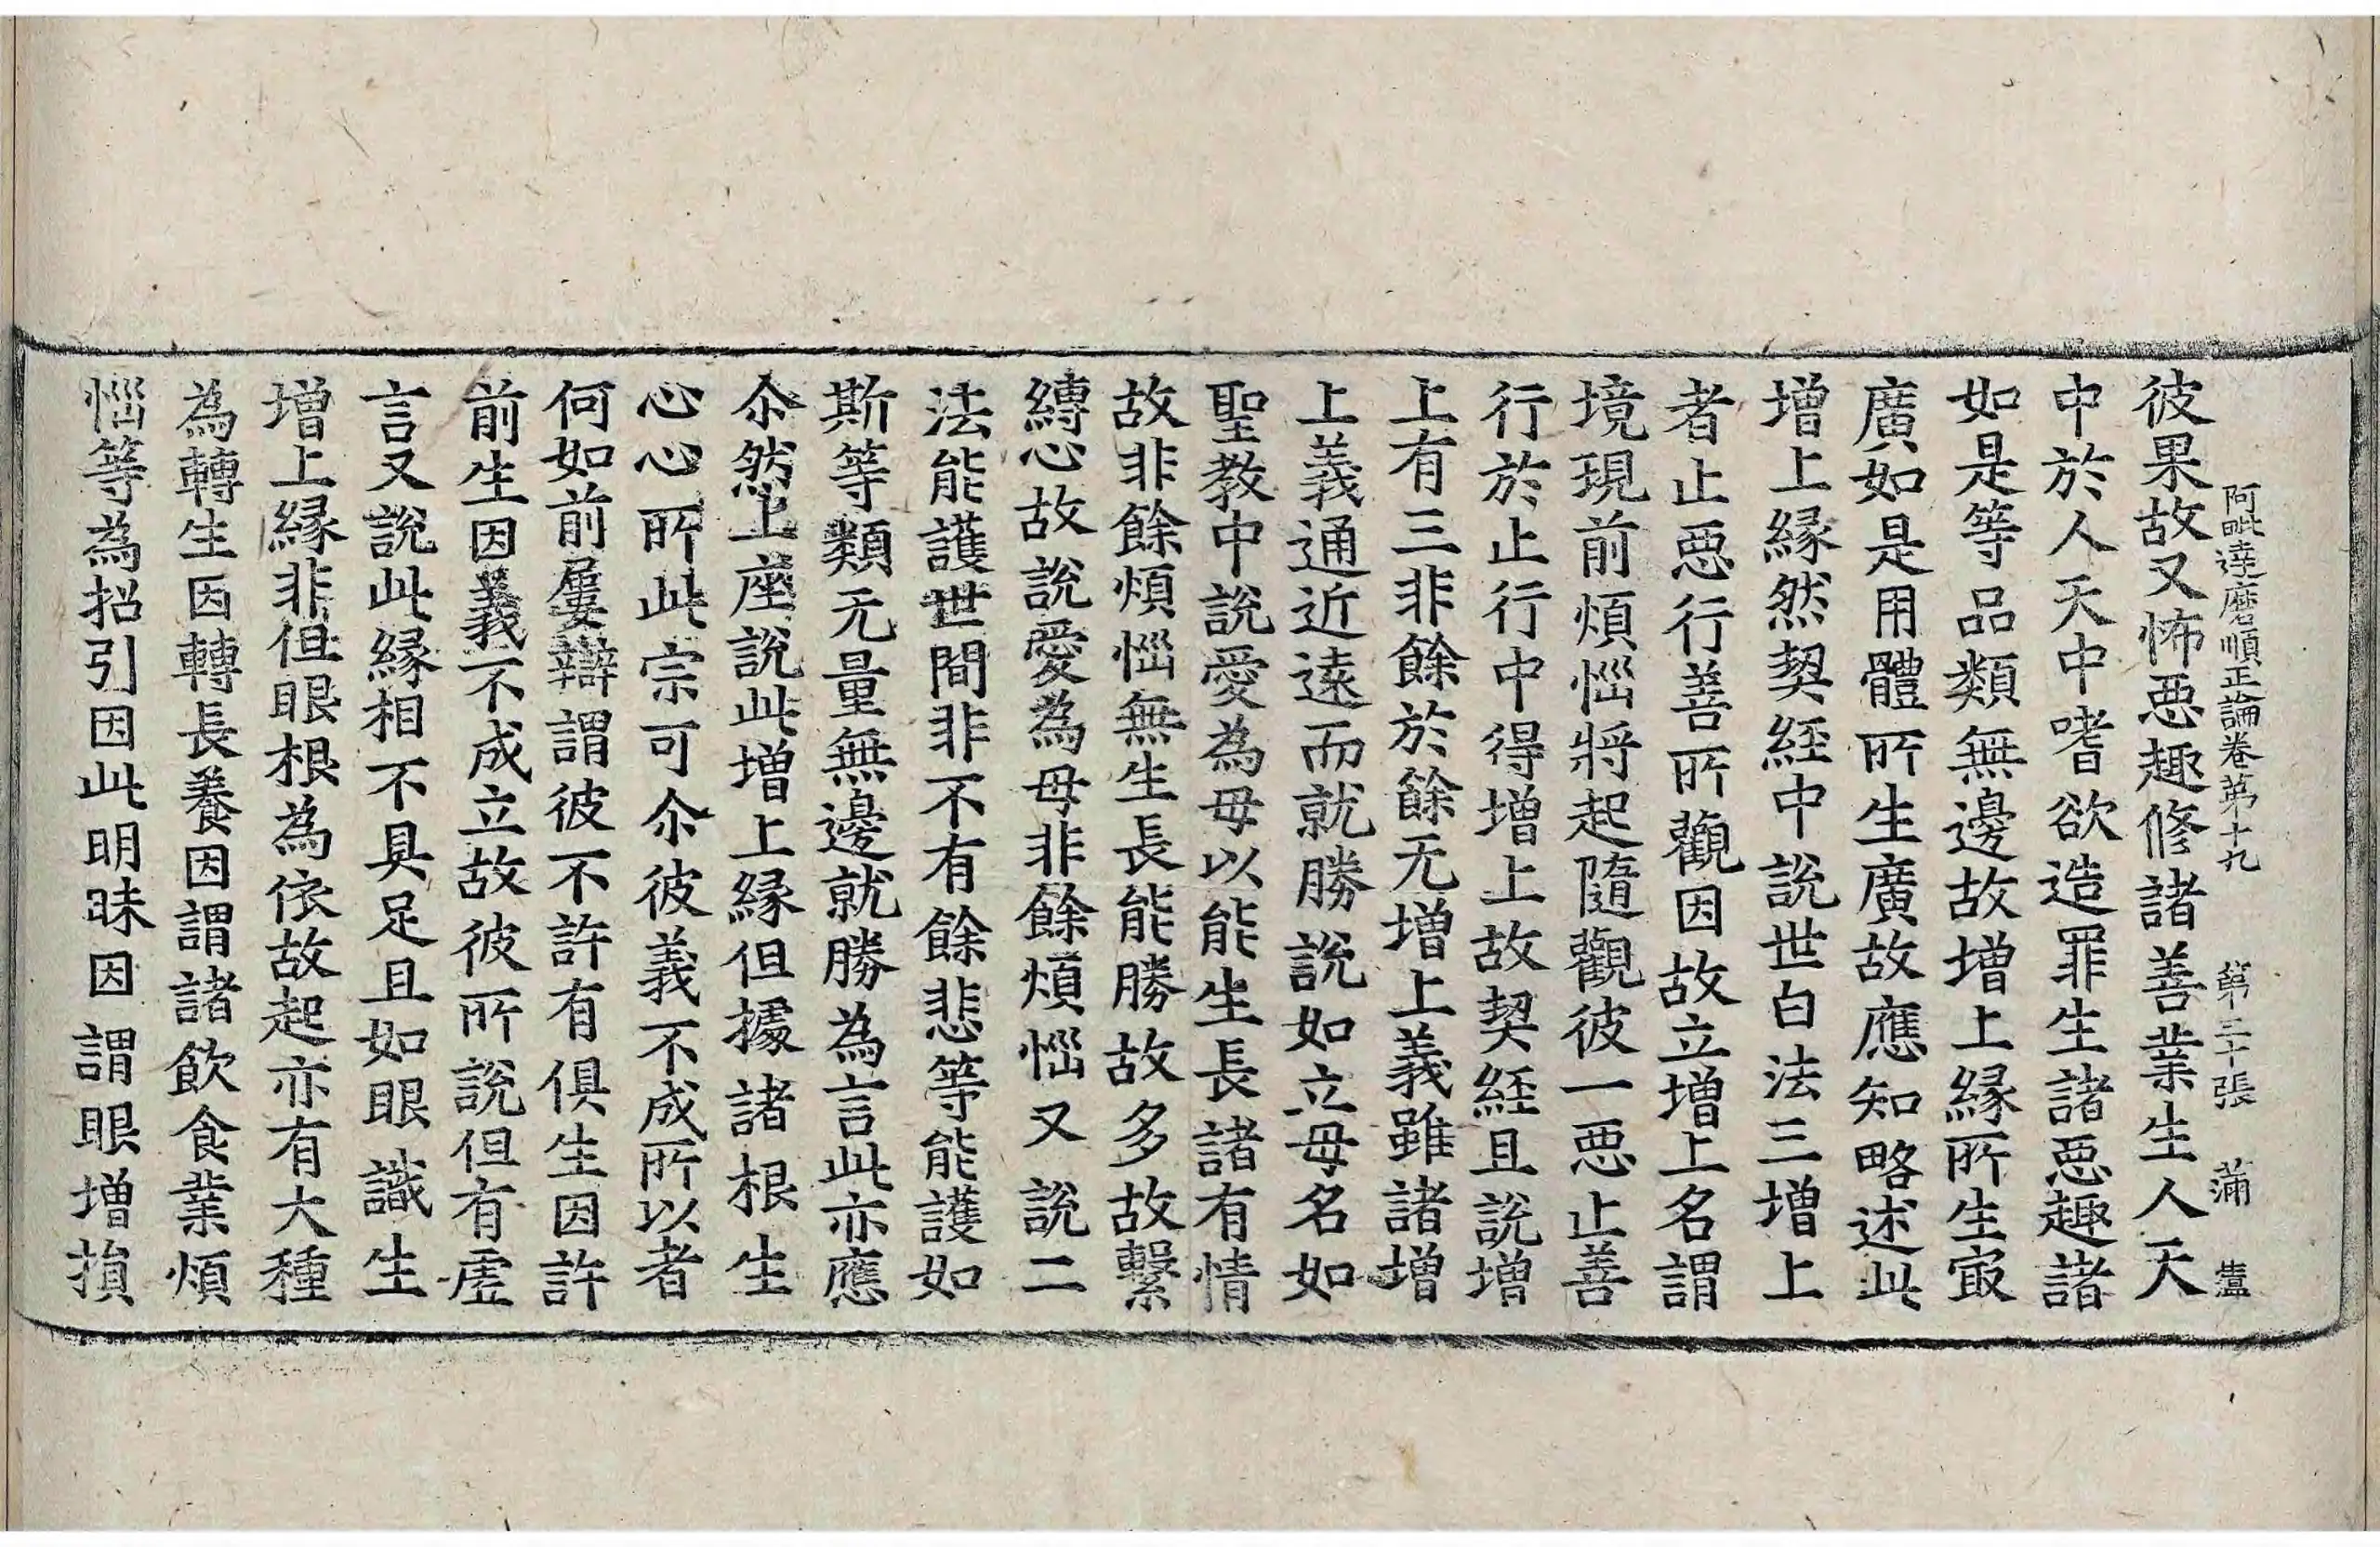 阿毗達磨順正論卷第十九 第二十張 蒲 盧
彼果故又怖惡趣修諸善業生人天
中於人天中嗜欲造罪生諸惡趣諸
如是等品類無邊故增上緣所生㝡
廣如是用體所生廣故應知略述此
增上緣然契經中說世白法三增上
者止惡行善所觀因故立增上名謂
境現前煩惱將起隨觀彼一惡止善
行於止行中得增上故契經且說增
上有三非餘於餘无增上義雖諸增
上義通近遠而就勝說如立母名如
聖教中說愛為母以能生長諸有情
故非餘煩惱無生長能勝故多故繫
縛心故說愛為母非餘煩惱又說二
法能護世間非不有餘悲等能護如
斯等類无量無邊就勝為言此亦應
尒然上座說此增上緣但據諸根生
心心所此宗可尒彼義不成所以者
何如前屢辯謂彼不許有俱生因許
前生因義不成立故彼所說但有虛
言又說此緣相不具足且如眼識生
增上緣非但眼根為依故起亦有大種
為轉生因轉長養因謂諸飲食業煩
惱等為招引因此明昧因謂眼增損